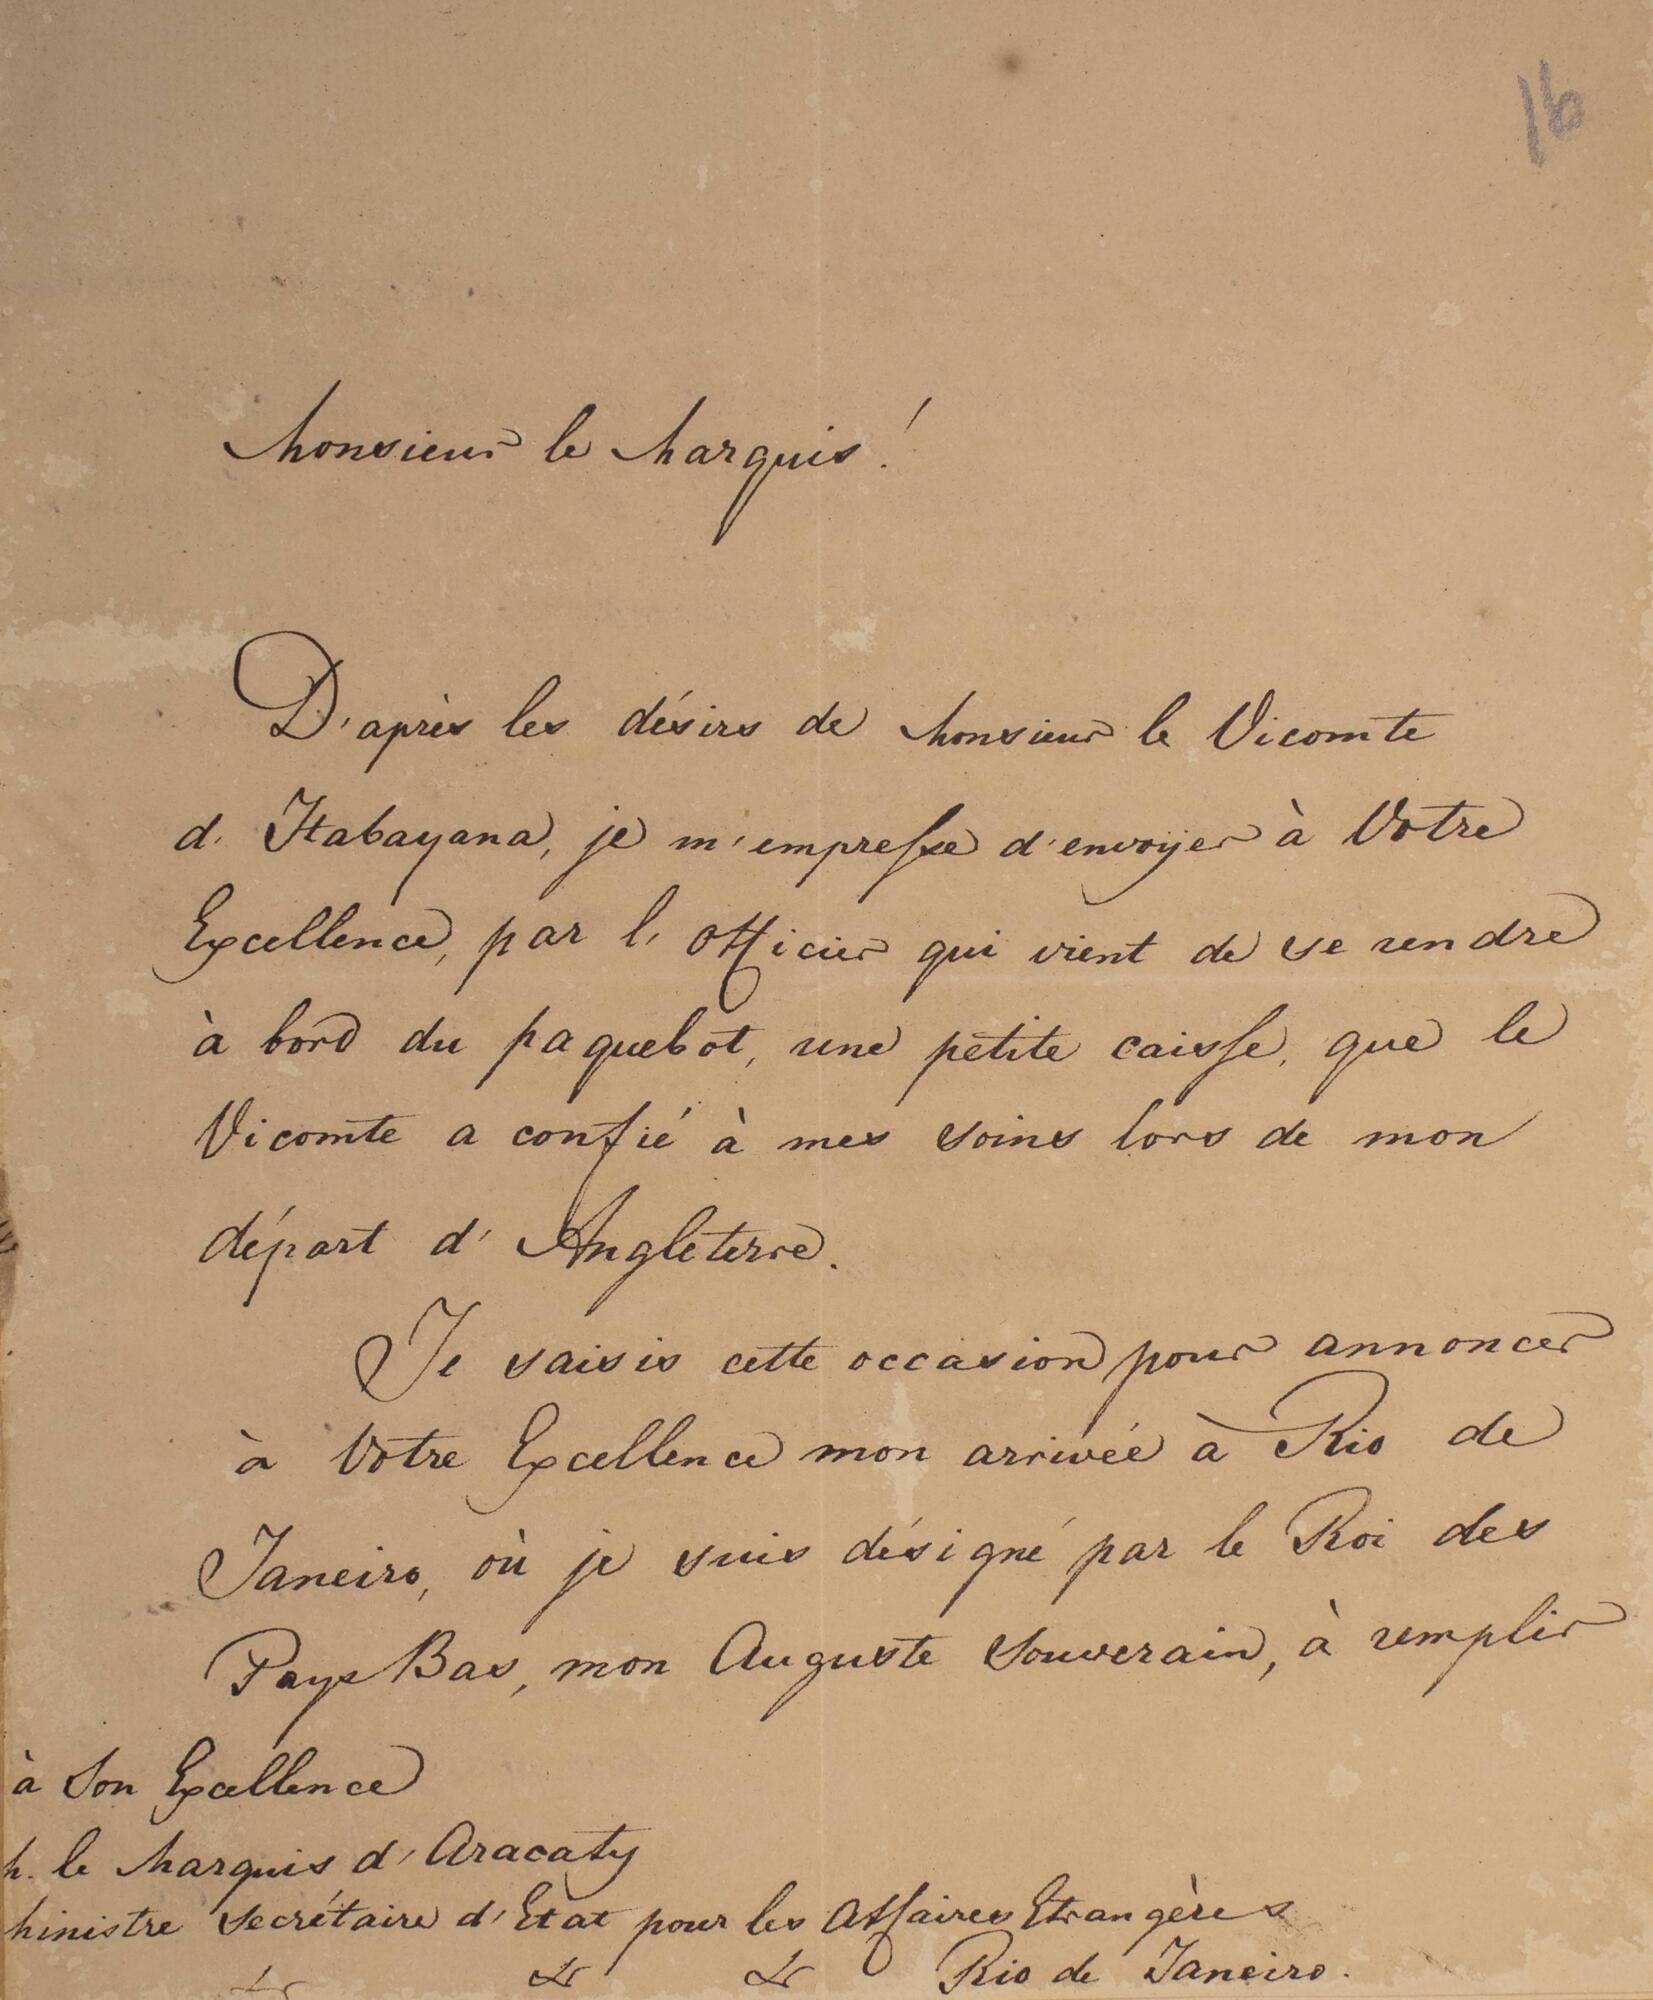 16
Monsieur le Marquis!
D'après les désirs de Monsieur le Vicomte
d'Itabayana, je m'empresse d'envoyer à Votre
Excellence, par l'officier qui vient de se rendre
à bord du paquebot, une petite caisse, que le
Vicomte a confié à mes soins lors de mon
départ d'Angleterre.
Je saisis cette occasion pour annoncer
à Votre Excellence mon arrivée à Rio de
Janeiro, où je suis désigné par le Roi des
Pays Bas, mon Auguste Souverain, à remplir
à Son Excellence
M. le Marquis d'Aracaty
Ministre Secrétaire d'Etat pour les Affaires Etrangères
&r &r &r Rio de Janeiro.